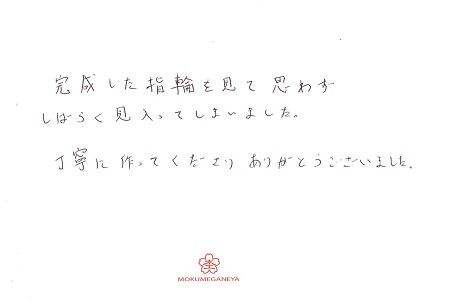 完成した指輪を見て思わず
しばらく見入ってしまいました。
丁寧に作ってくださりありがとうございました。
MOKUMEGANEYA